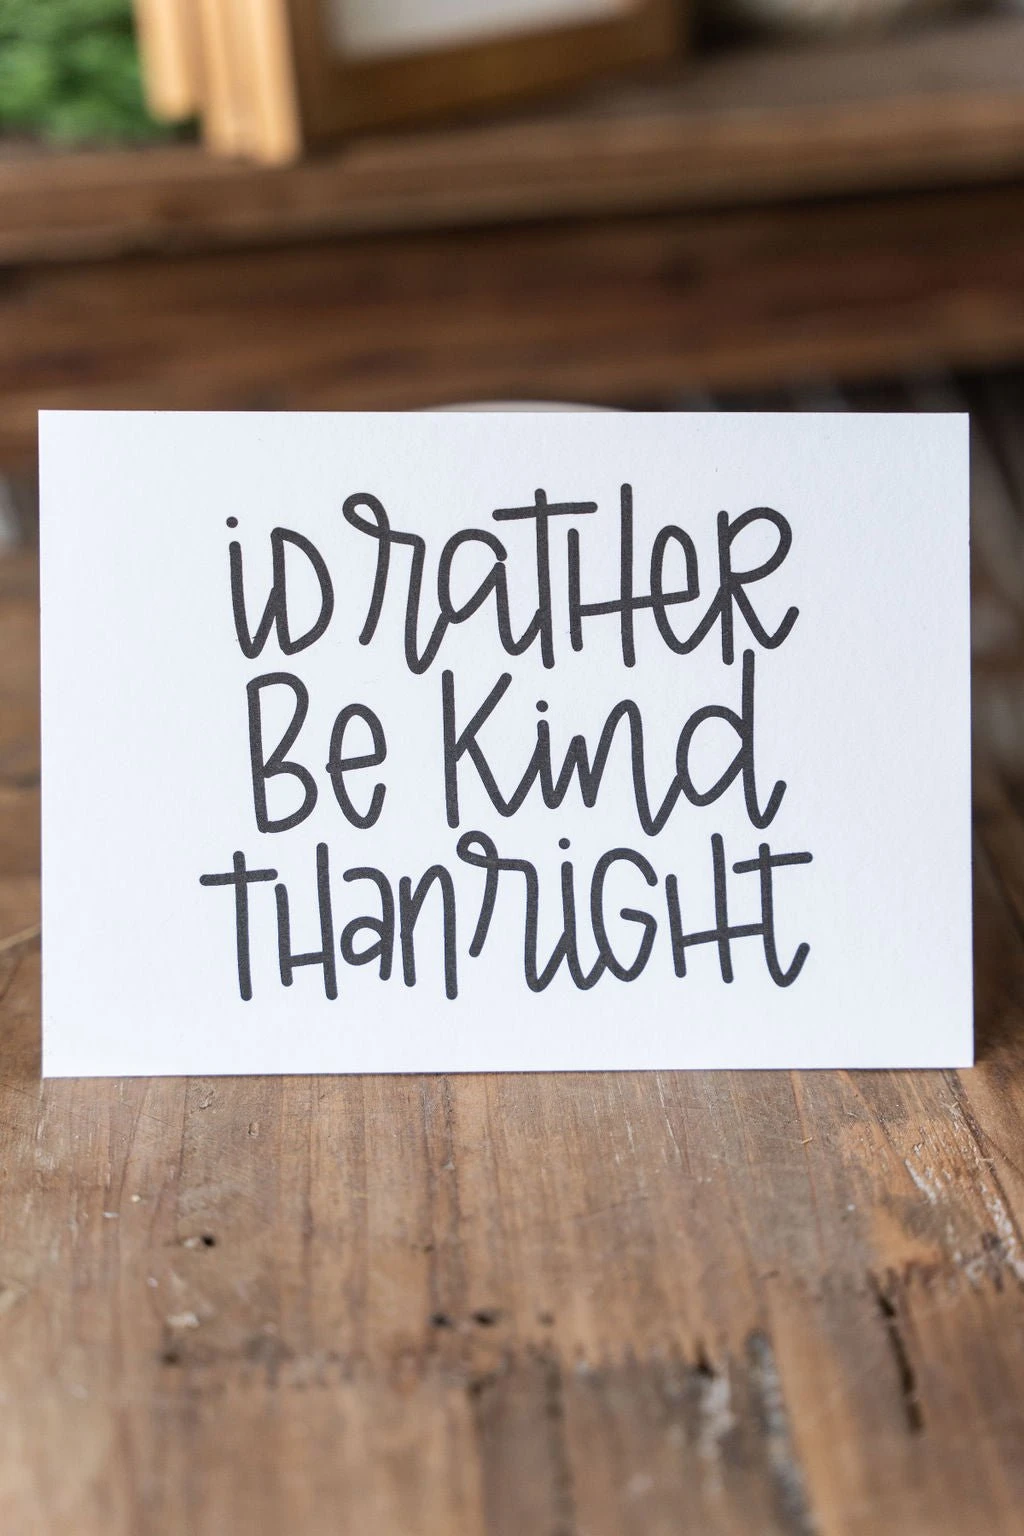 iD raTHeR
Be Kind
THan riGHt